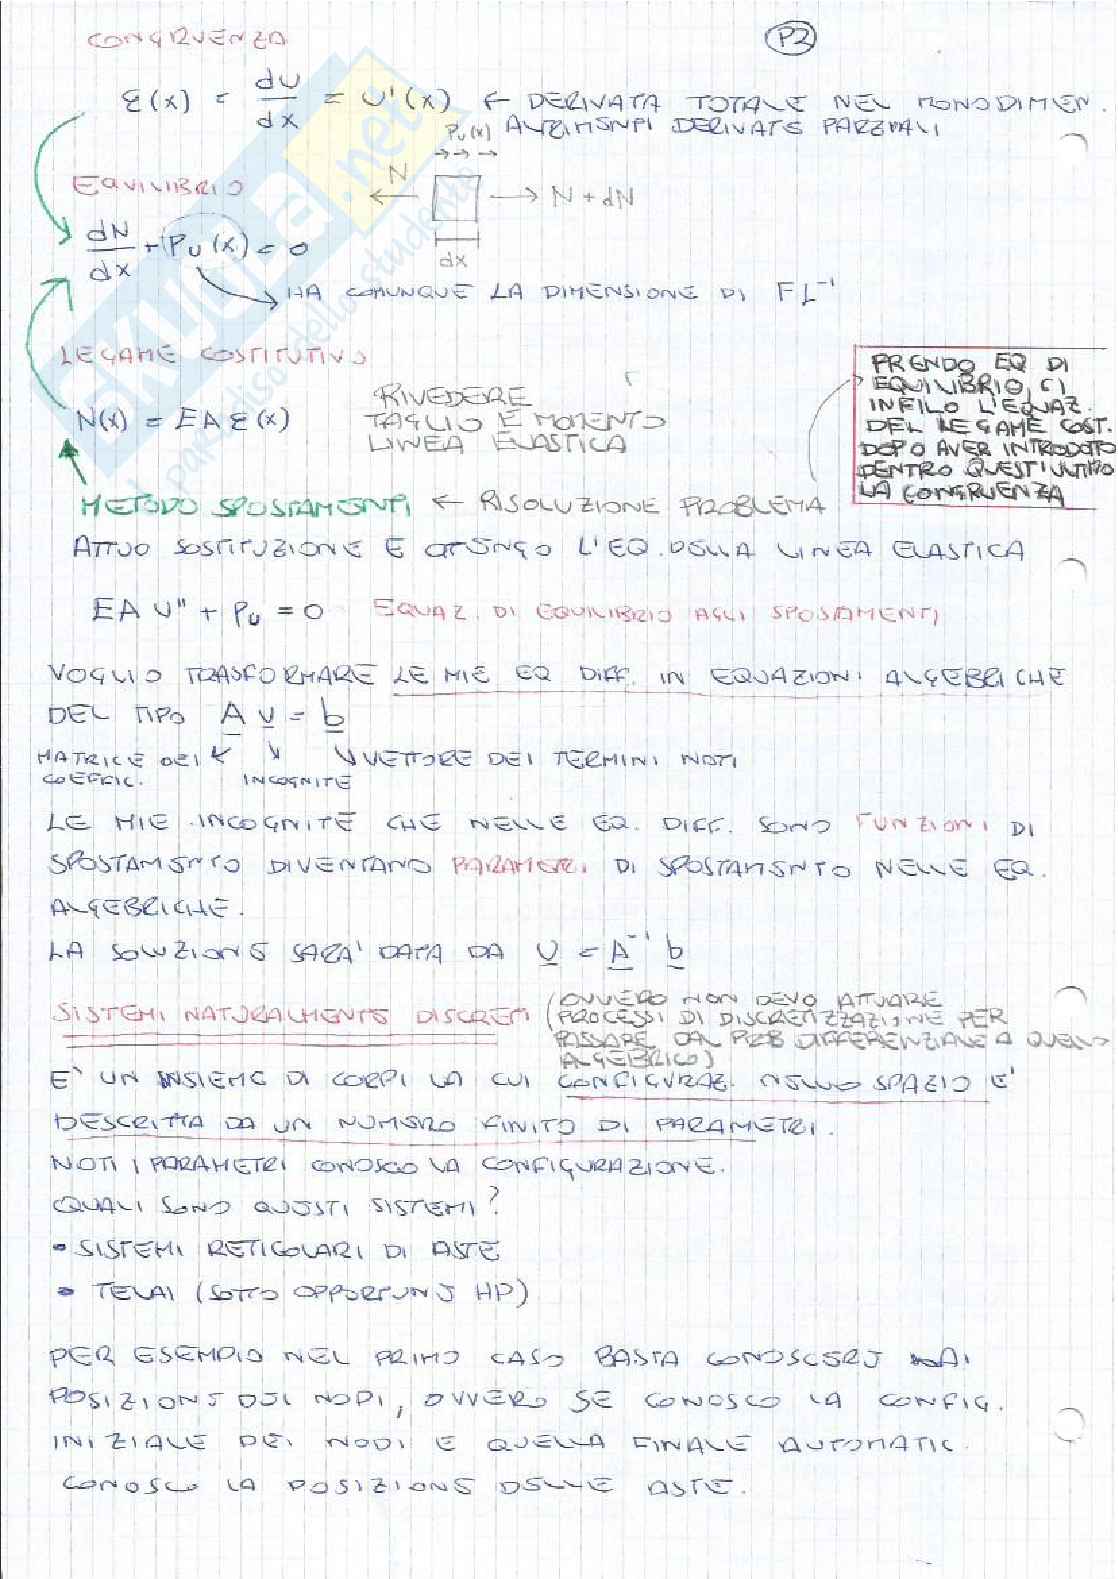 P2
CONGRUENZA
ε(x) = du/dx = u'(x) ← DERIVATA TOTALE NEL MONODIMEN.
ALTRIMENTI DERIVATE PARZIALI
Pu(x)
EQUILIBRIO
N
N + dN
dN/dx + Pu(x) = 0
dx
HA COMUNQUE LA DIMENSIONE DI FL⁻¹
LEGAME COSTITUTIVO
N(x) = EA ε(x)
RIVEDERE
TAGLIO E MOMENTO
LINEA ELASTICA
PRENDO EQ DI
EQUILIBRIO, CI
INFILO L'EQUAZ.
DEL LEGAME COST.
DOPO AVER INTRODOTTO
DENTRO QUEST'ULTIMO
LA CONGRUENZA
METODO SPOSTAMENTI ← RISOLUZIONE PROBLEMA
ATTUO SOSTITUZIONE E OTTENGO L'EQ. DELLA LINEA ELASTICA
EA u'' + Pu = 0 EQUAZ. DI EQUILIBRIO AGLI SPOSTAMENTI
VOGLIO TRASFORMARE LE MIE EQ DIFF. IN EQUAZIONI ALGEBRICHE
DEL TIPO A u = b
MATRICE DEI
COEFFIC.
INCOGNITE
VETTORE DEI TERMINI NOTI
LE MIE INCOGNITE CHE NELLE EQ. DIFF. SONO FUNZIONI DI
SPOSTAMENTO DIVENTANO PARAMETRI DI SPOSTAMENTO NELLE EQ.
ALGEBRICHE.
LA SOLUZIONE SARA' DATA DA u = A⁻¹ b
SISTEMI NATURALMENTE DISCRETI (OVVERO NON DEVO ATTUARE
PROCESSI DI DISCRETIZZAZIONE PER
PASSARE DAL PROB DIFFERENZIALE A QUELLO
ALGEBRICO)
E' UN INSIEME DI CORPI LA CUI CONFIGURAZ. NELLO SPAZIO E'
DESCRITTA DA UN NUMERO FINITO DI PARAMETRI.
NOTI I PARAMETRI CONOSCO LA CONFIGURAZIONE.
QUALI SONO QUESTI SISTEMI?
• SISTEMI RETICOLARI DI ASTE
• TELAI (SOTTO OPPORTUNE HP)
PER ESEMPIO NEL PRIMO CASO BASTA CONOSCERE LA
POSIZIONE DEI NODI, OVVERO SE CONOSCO LA CONFIG.
INIZIALE DEI NODI E QUELLA FINALE AUTOMATIC.
CONOSCO LA POSIZIONE DELLE ASTE.
skuola.net
il paradiso dello studente